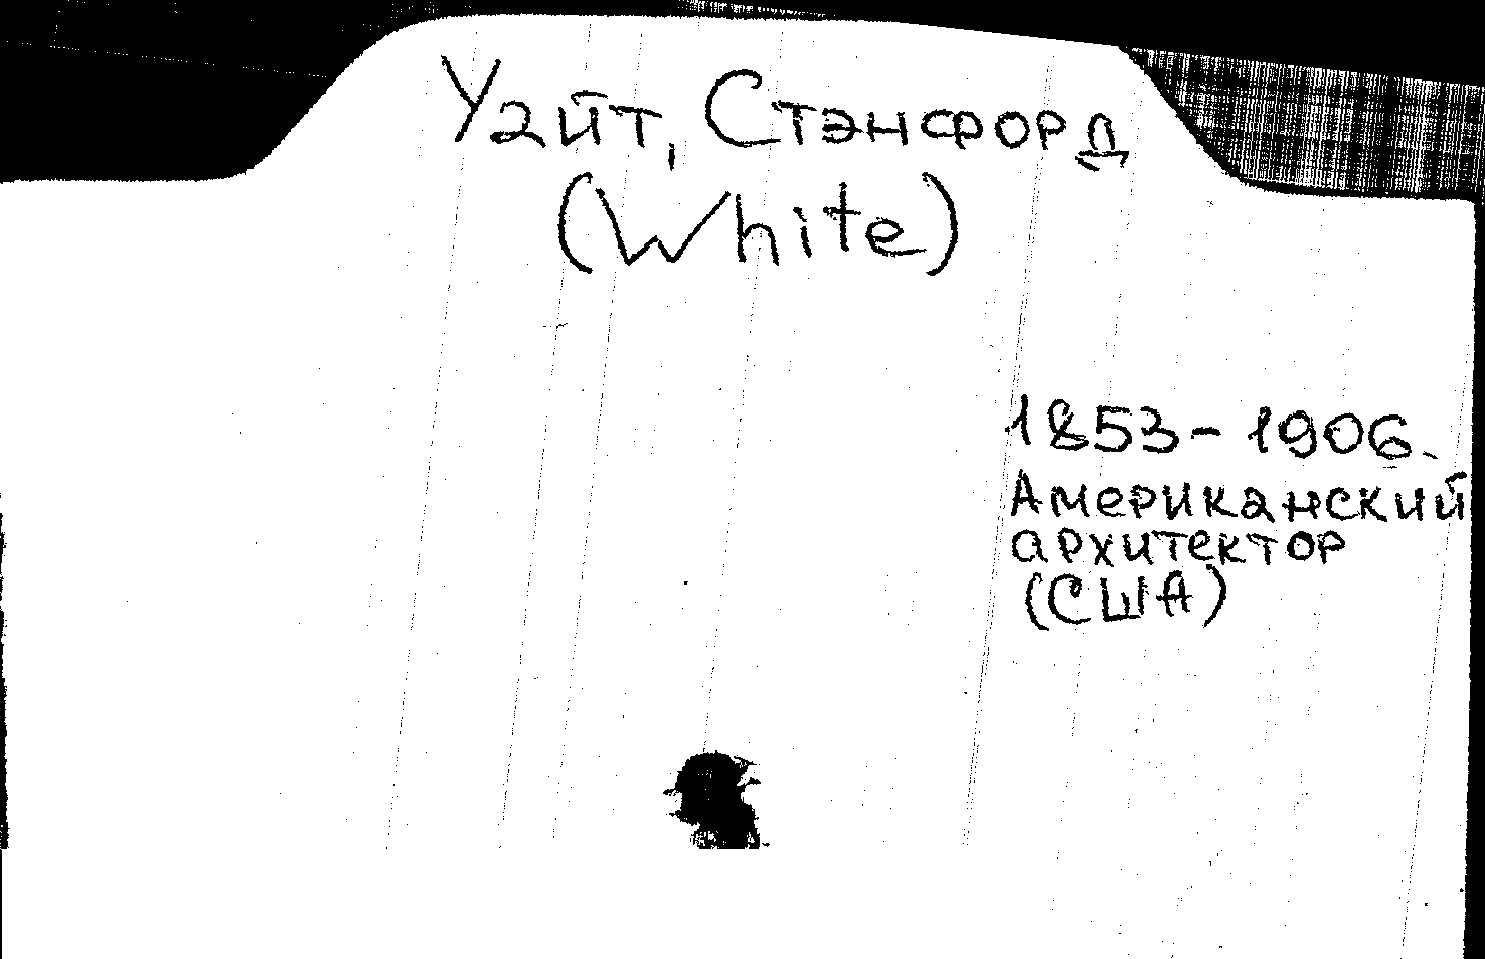 Уайт, Стэнфорд
(White)
1853-1906.
Американский
архитектор
(США)